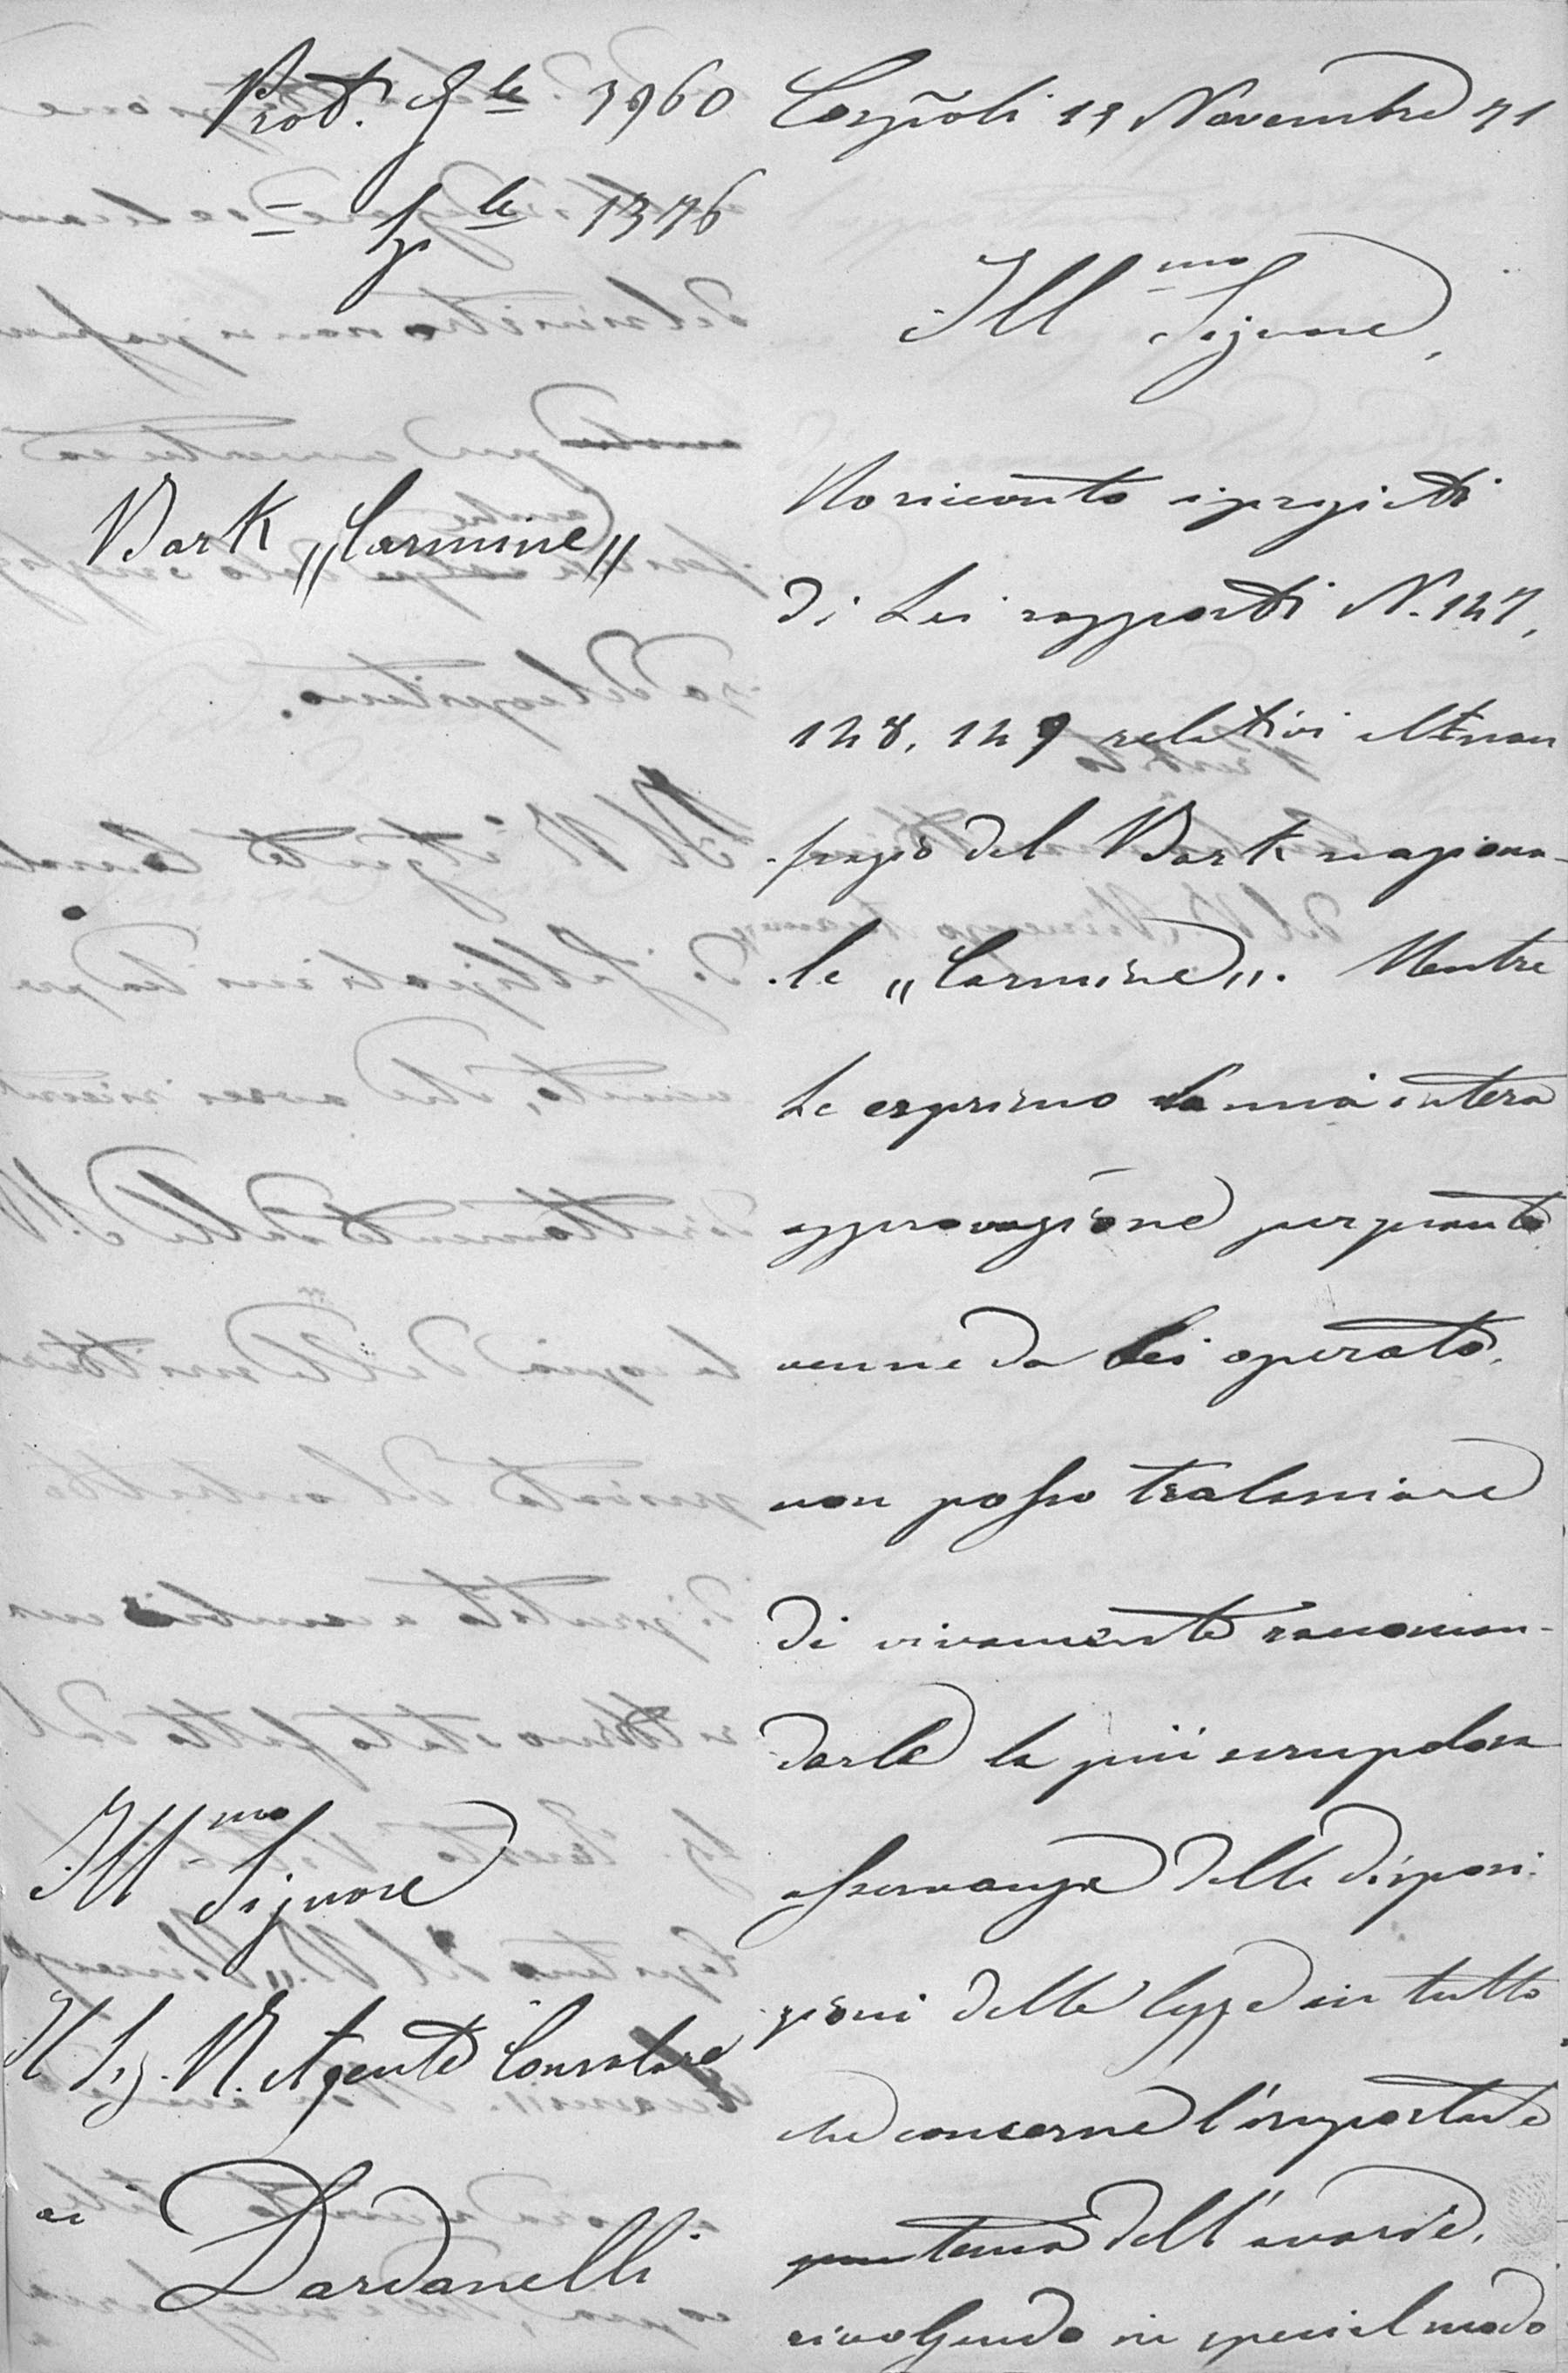 Prot. Gle 3960
= Sple 1376
Bark „Carmine„
Illmo Signore
Il Sig. R. Agente Consolare
ai Dardanelli
Cospñoli 19 Novembre 71
Illmo Signore,
Ho ricevuto i pregiatti
di Lei rapporti N. 127,
128, 129 relativi al nau
fragio del Bark naziona-
le „Carmine„. Mentre
Le esprimo la mia intera
approvazione per quanto
venne da Lei operato,
non posso tralasciare
di vivamente raccoman-
darle la più scrupolosa
osservanza delle disposi-
zioni della legge in tutto
che concerne l'importante
tema dell'avarie,
rivolgendo in special modo